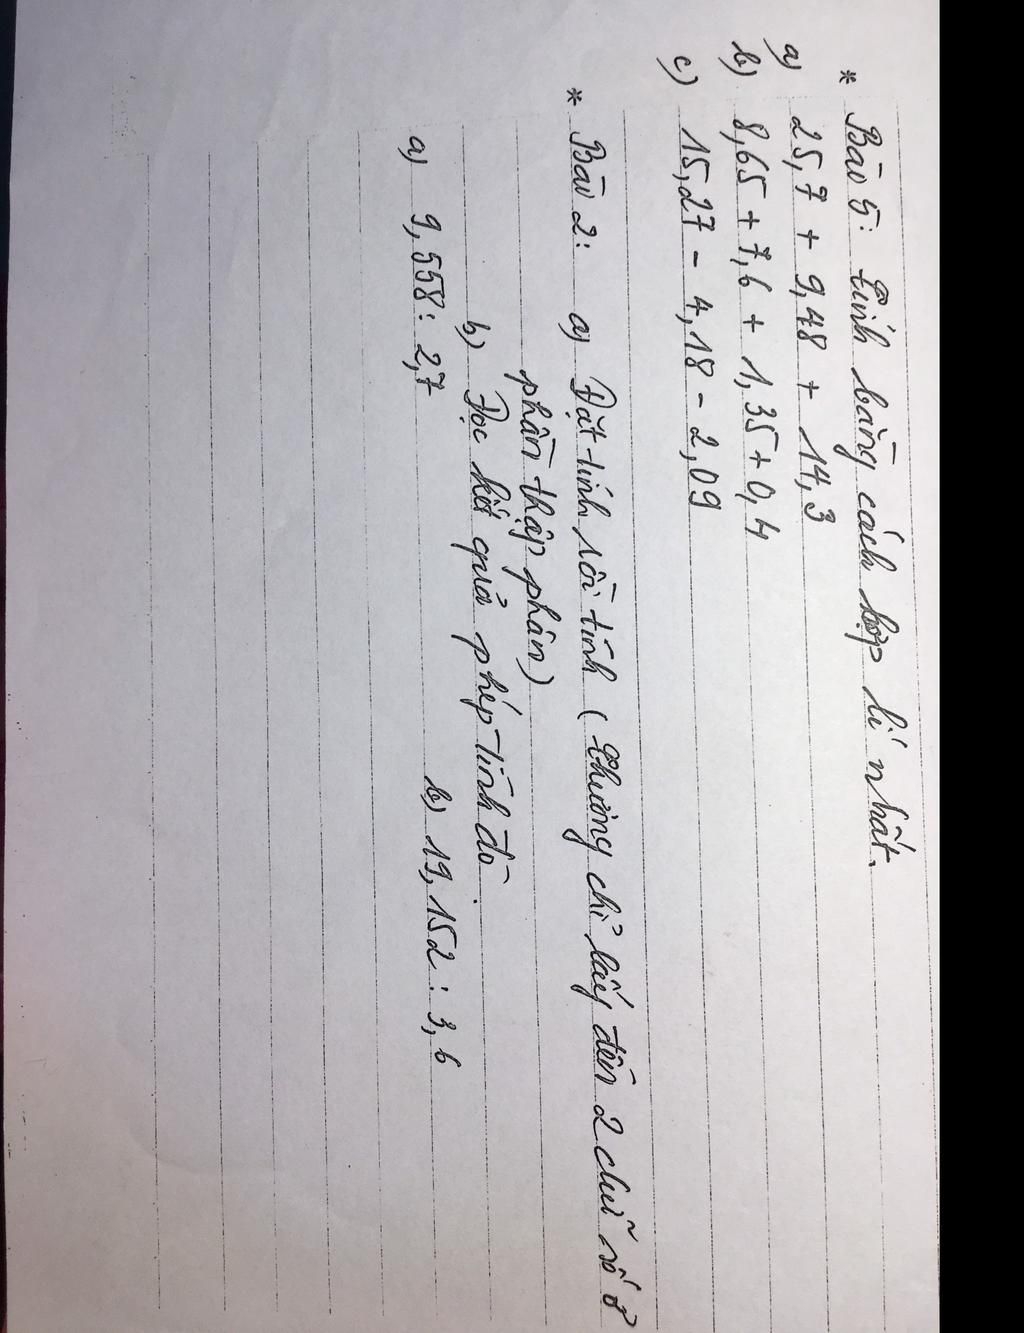 * Bài 5: Tính bằng cách hợp lí nhất.
a) 25,7 + 9,48 + 14,3
b) 8,65 + 7,6 + 1,35 + 0,4
c) 15,27 - 4,18 - 2,09
* Bài 2: a) Đặt tính rồi tính (thương chỉ lấy đến 2 chữ số ở
phần thập phân)
b) Đọc kết quả phép tính đó.
a) 9,558 : 2,7 b) 19,152 : 3,6